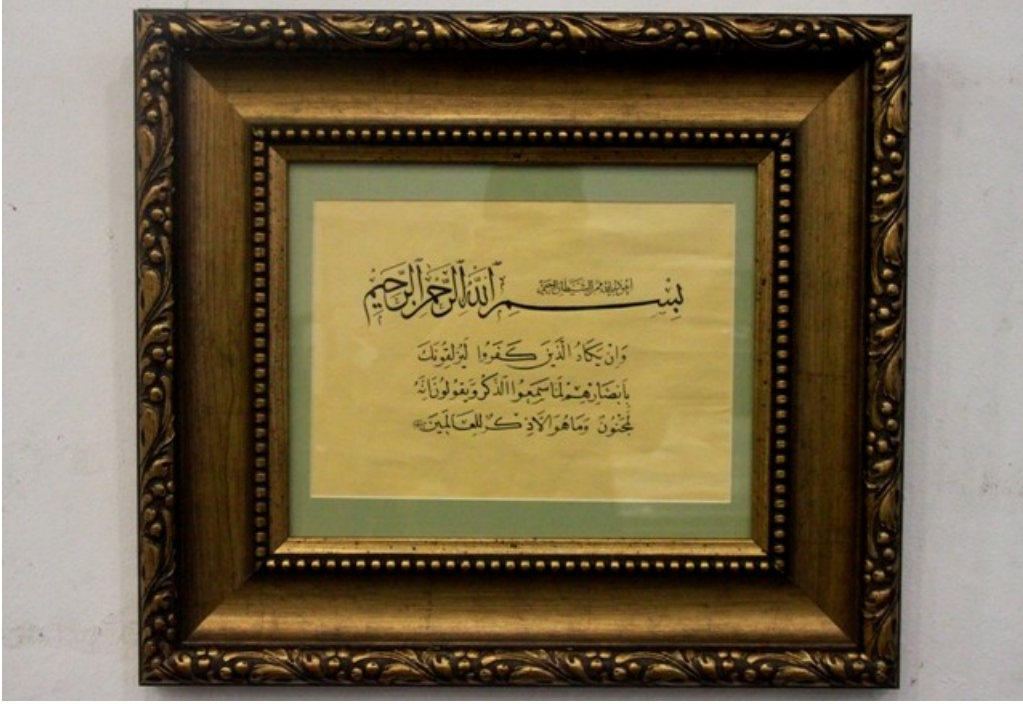 أعوذ بالله من الشيطان الرجيم
بِسْمِ ٱللَّهِ ٱلرَّحْمَٰنِ ٱلرَّحِيمِ
وَإِنْ يَكَادُ الَّذِينَ كَفَرُوا لَيُزْلِقُونَكَ
بِأَبْصَارِهِمْ لَمَّا سَمِعُوا الذِّكْرَ وَيَقُولُونَ إِنَّهُ
لَمَجْنُونٌ وَمَا هُوَ إِلَّا ذِكْرٌ لِلْعَالَمِينَ